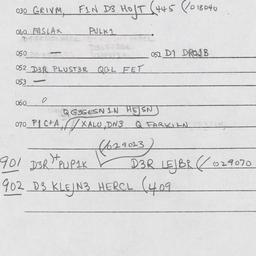 030 GRIVM, F1N D3 HOJT (445 (/018040
040 MISLAX PULK1
050 — 051 D1 DROJB
052 D3R PLUST3R QGL FET
053 —
060
QGSGESN1N HEJSN)
070 P1C+A, (/ XALU, DN3 Q FARKILN
(/029023)
901 D3R)+ PUP1K D3R LEJBR (/029070
902 D3 KLEJN3 HERCL (409